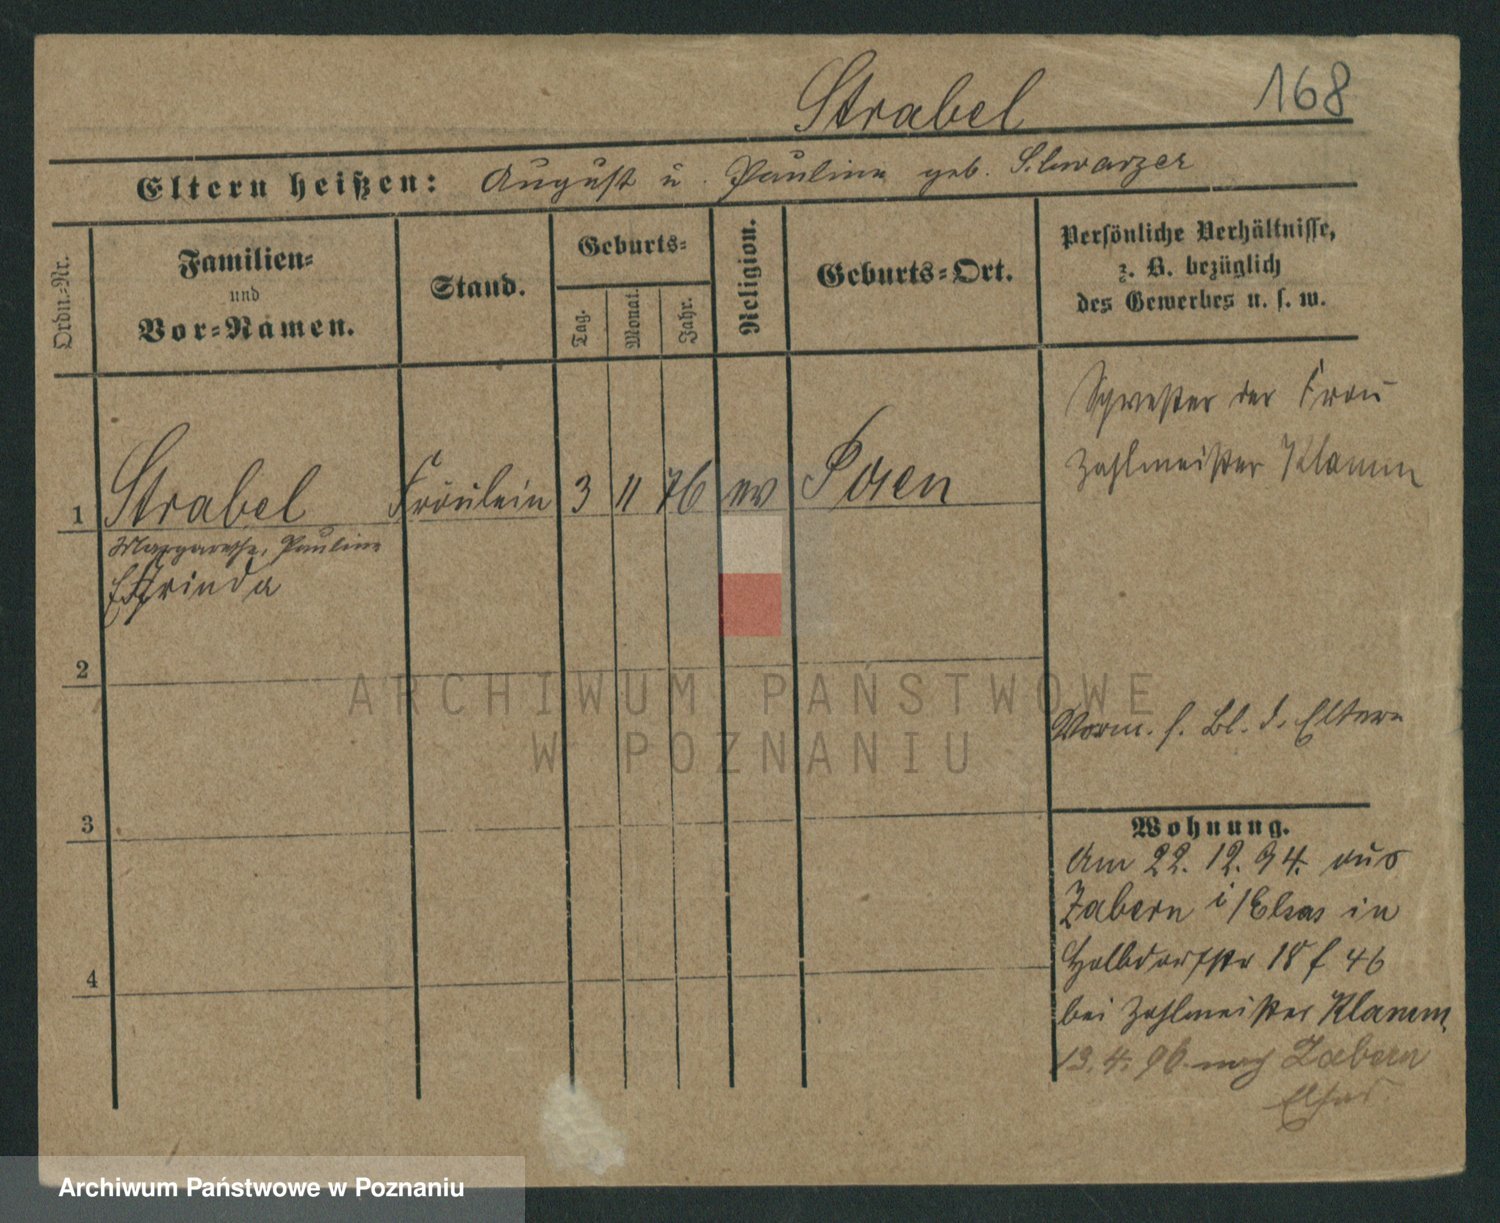 Strabel
168
Eltern heißen: August u. Pauline geb. Schwarzer
Ordn.-Nr.
Familien-
und
Vor-Namen.
Stand.
Geburts-
Tag.
Monat.
Jahr.
Religion.
Geburts-Ort.
Persönliche Verhältnisse,
z. B. bezüglich
des Gewerbes u. s. w.
1 Strabel Fräulein 3 11 76 ev Posen
Margarethe, Pauline
Schwester der Frau
Zahlmeister Klamm
2
Vorm. s. Bl. d. Eltern
3
Wohnung.
Am 22. 12. 94. aus
Zabern i/Elsas in
Halbdorfstr 18 f 46
bei Zahlmeister Klamm
13. 4. 96 nach Zabern
Elsas
4
ARCHIWUM PAŃSTWOWE
W POZNANIU
Archiwum Państwowe w Poznaniu